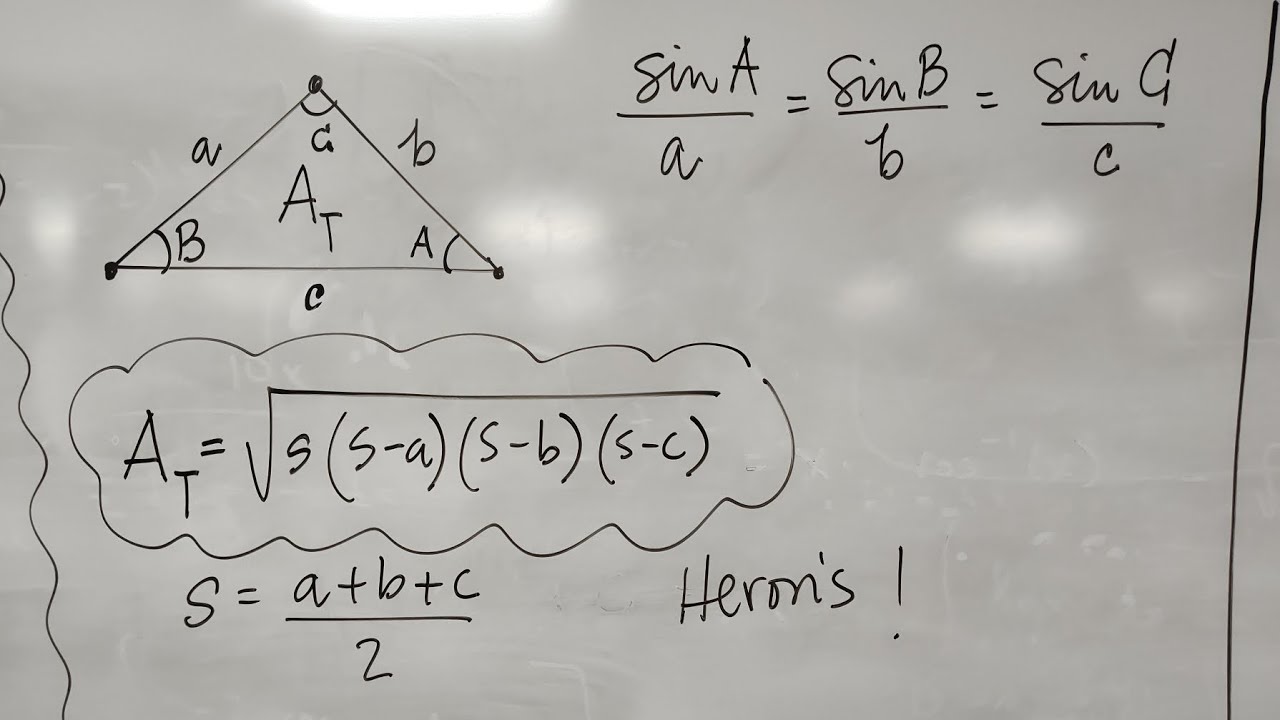 a
b
C
A_T
B
A
c
sin A / a = sin B / b = sin C / c
A_T = √s(s-a)(s-b)(s-c)
s = a+b+c / 2
Heron's !